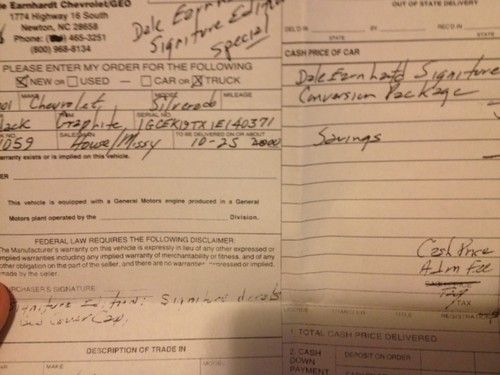 e Earnhardt Chevrolet/GEO
1774 Highway 16 South
Newton, NC 28658
Phone: 465-3251
(800) 968-8134
Dale Earnhardt
Signiture Edition
Special
PLEASE ENTER MY ORDER FOR THE FOLLOWING
NEW OR USED — CAR OR TRUCK
MAKE MODEL MILEAGE
001 Chevrolet Silverado
SERIAL NO.
lack Graphite 1GCEK19TX1E140371
SALESMAN TO BE DELIVERED ON OR ABOUT
1059 House/Missy 10-25 2000
warranty exists or is implied on this vehicle.
ER
This vehicle is equipped with a General Motors engine produced in a General
Motors plant operated by the Division.
FEDERAL LAW REQUIRES THE FOLLOWING DISCLAIMER:
The Manufacturer's warranty on this vehicle is expressly in lieu of any other expressed or
implied warranties including any implied warranty of merchantability or fitness, and of any
other obligation on the part of the seller, and there are no warranties expressed or implied,
made by the seller.
PURCHASER'S SIGNATURE:
Signiture Edition: Signiture decals
DESCRIPTION OF TRADE IN
MAKE
OUT OF STATE DELIVERY
DEL'D IN BY REC'D IN
STATE STATE
CASH PRICE OF CAR
Dale Earnhardt Signiture
Conversion Package
Savings
Cash Price
Adm Fee
Tag
TAX
LICENSE TRANSFER TITLE REGISTRATION
1. TOTAL CASH PRICE DELIVERED
2. CASH
DOWN
PAYMENT
DEPOSIT ON ORDER